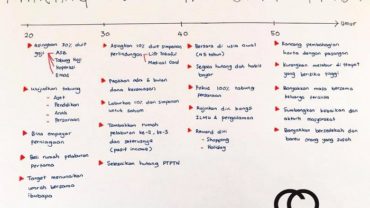 Umur
20
30
40
50
Asingkan 30% duit
gaji
ASB
Tabung Haji
Koperasi
Emas
Wujudkan tabung
Pendidikan
Anak
Persaraan
Bina empayar
perniagaan
Beli rumah pelaburan
pertama
Target menunaikan
umrah bersama
ibubapa
Asingkan 10% duit simpanan
perlindungan
Life Takaful
Medical Card
Pastikan ada 6 bulan
dana kecemasan
Laburkan 10% dari simpanan
untuk saham
Tambahkan rumah
pelaburan ke-2, ke-3
dan seterusnya
(pasif income)
Selesaikan hutang PTPTN
Bersara di usia awal
(45 tahun)
Segera hutang dah habis
bayar
Pakai 100% tabung
persaraan
Rajinkan diri kongsi
ILMU & pengalaman
Reward diri
Shopping
Holiday
Rancang pembahagian
harta dengan pasangan
Kurangkan melabur di tempat
yang berisiko tinggi
Banyakkan masa bersama
keluarga tercinta
Sumbangkan kepakaran dan
aktiviti masyarakat
Banyakkan bersedekah dan
bantu orang yang susah